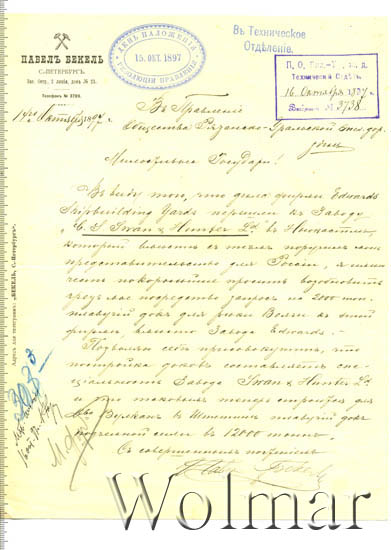 ПАВЕЛЪ БЕКЕЛЬ
С.-ПЕТЕРБУРГЪ.
Вас. Остр., 2 линія, домъ № 23.
Телефонъ № 3700.
14го Октября 1897
ДЕНЬ НАЛОЖЕНІЯ
15. ОКТ. 1897
РЕЗОЛЮЦІИ ПРАВЛЕНІЯ
Въ Техническое
Отдѣленіе.
Техническій Отдѣлъ
16 Октября 1897 г.
№ 3738
Въ Правленіе
Общества Рязанско-Уральской жел. дор.
здѣсь
Милостивые Государи!
Въ виду того, что дѣла фирмы Edwards
Shipbuilding Yards перешли къ Заводу
„C. S. Swan & Hunter Ld" въ Ньюкастлѣ,
который вмѣстѣ съ тѣмъ поручилъ мнѣ
представительство для Россіи, я имѣю
честь покорнѣйше просить возобновить
чрезъ мое посредство запросъ на 2000 тон.
пловучій докъ для рѣки Волги къ этой
фирмѣ, вмѣсто Завода Edwards.
Позволяю себѣ присовокупить, что
постройка доковъ составляетъ спе-
ціальность Завода Swan & Hunter Ld
и что таковымъ теперь строится для
Вулканъ въ Штетинѣ пловучій докъ
подъемной силы въ 12000 тоннъ.
Съ совершеннымъ почтеніемъ
Павелъ Бекель
Адресъ для телеграммъ: „БЕКЕЛЬ, С.-Петербургъ".
Wolmar